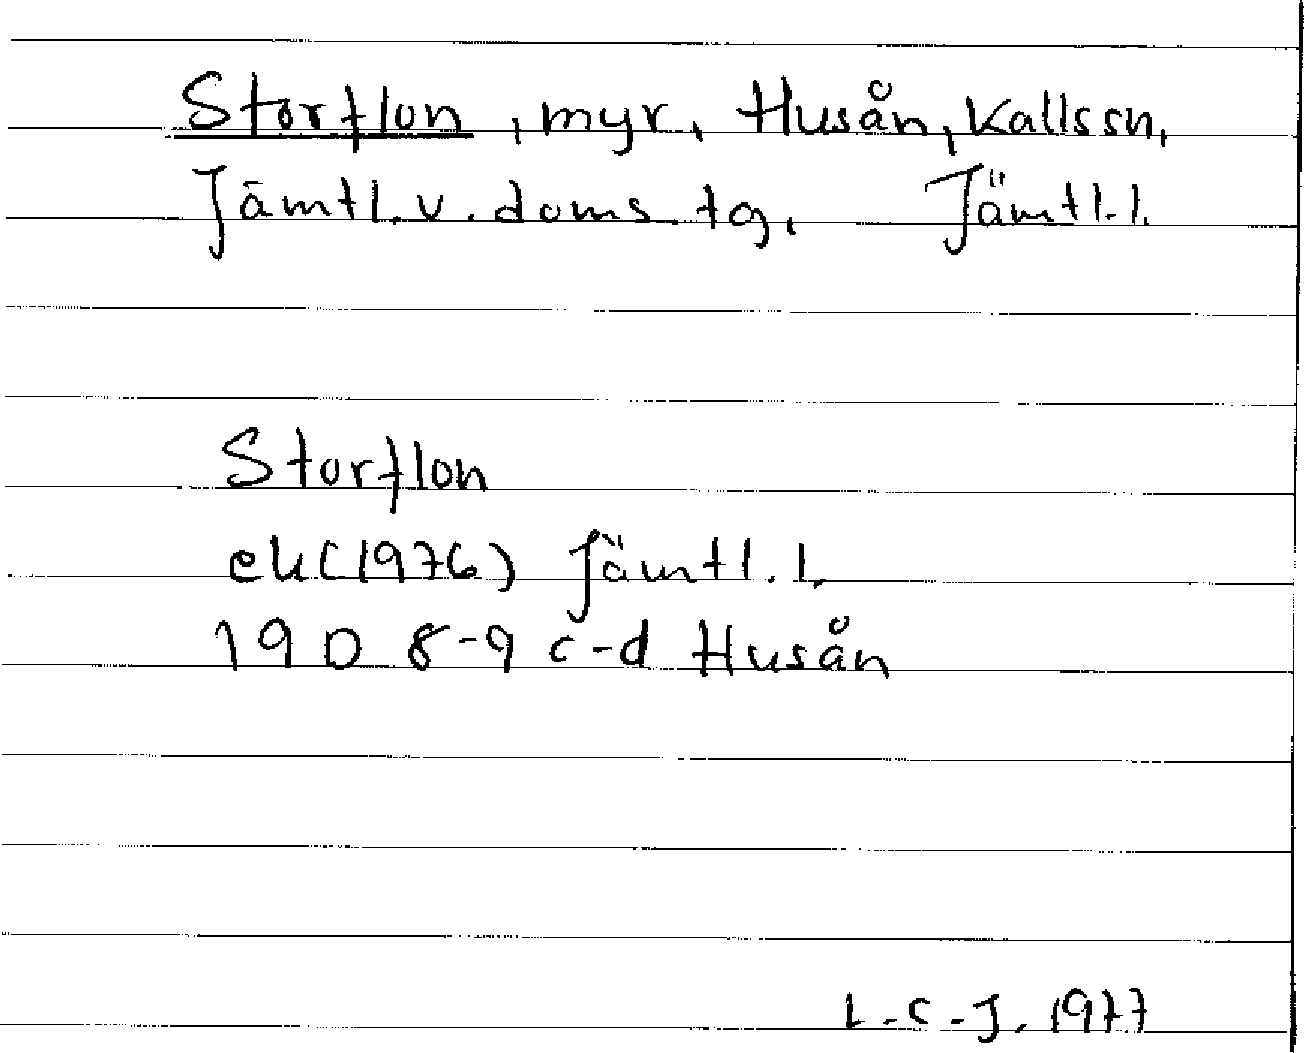 Storflon, myr, Husån, Kallssn,
Jämtl. v. doms. tg, Jämtl. l.
Storflon
ek(1976) Jämtl. l.
19D 8-9 c-d Husån
L-C-J. 1977